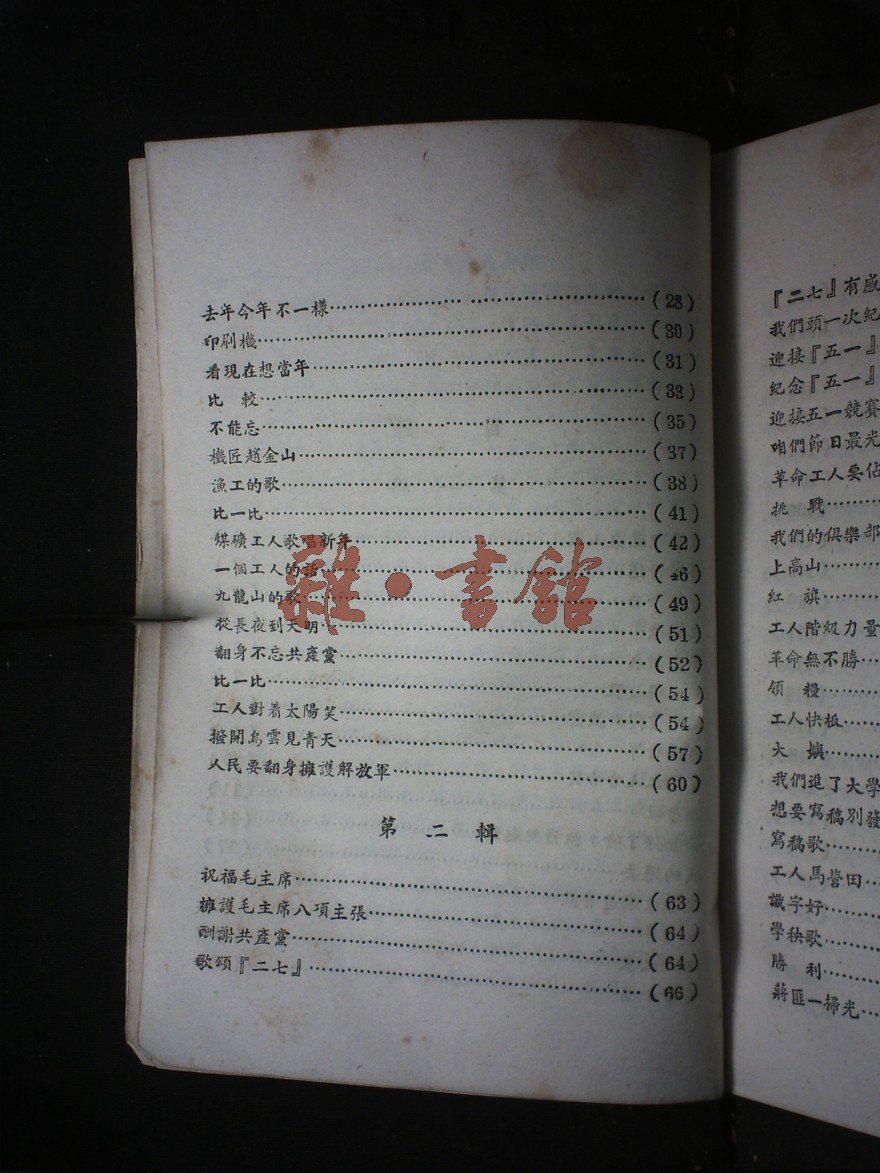 去年今年不一樣……(28)
印刷機……(30)
看現在想當年……(31)
比　較……(33)
不能忘……(35)
機匠趙金山……(37)
漁工的歌……(38)
比一比……(41)
煤礦工人歌唱新年……(42)
一個工人的話……(46)
九龍山的歌……(49)
從長夜到天明……(51)
翻身不忘共產黨……(52)
比一比……(54)
工人對着太陽笑……(54)
撥開烏雲見青天……(57)
人民要翻身擁護解放軍……(60)
第二輯
祝福毛主席……(63)
擁護毛主席八項主張……(64)
酬謝共產黨……(64)
歌頌『二七』……(66)
『二七』有感
我們頭一次紀
迎接『五一』
紀念『五一』
迎接五一競賽
咱們節日最光
革命工人要佔
挑　戰……
我們的俱樂部
上高山……
紅　旗……
工人階級力量
革命無不勝……
領　糧……
工人快板……
大　嫲……
我們進了大學
想要寫稿別發
寫稿歌……
工人馬營田……
識字好……
學秧歌……
勝　利……
蔣匪一掃光……
雜·書館